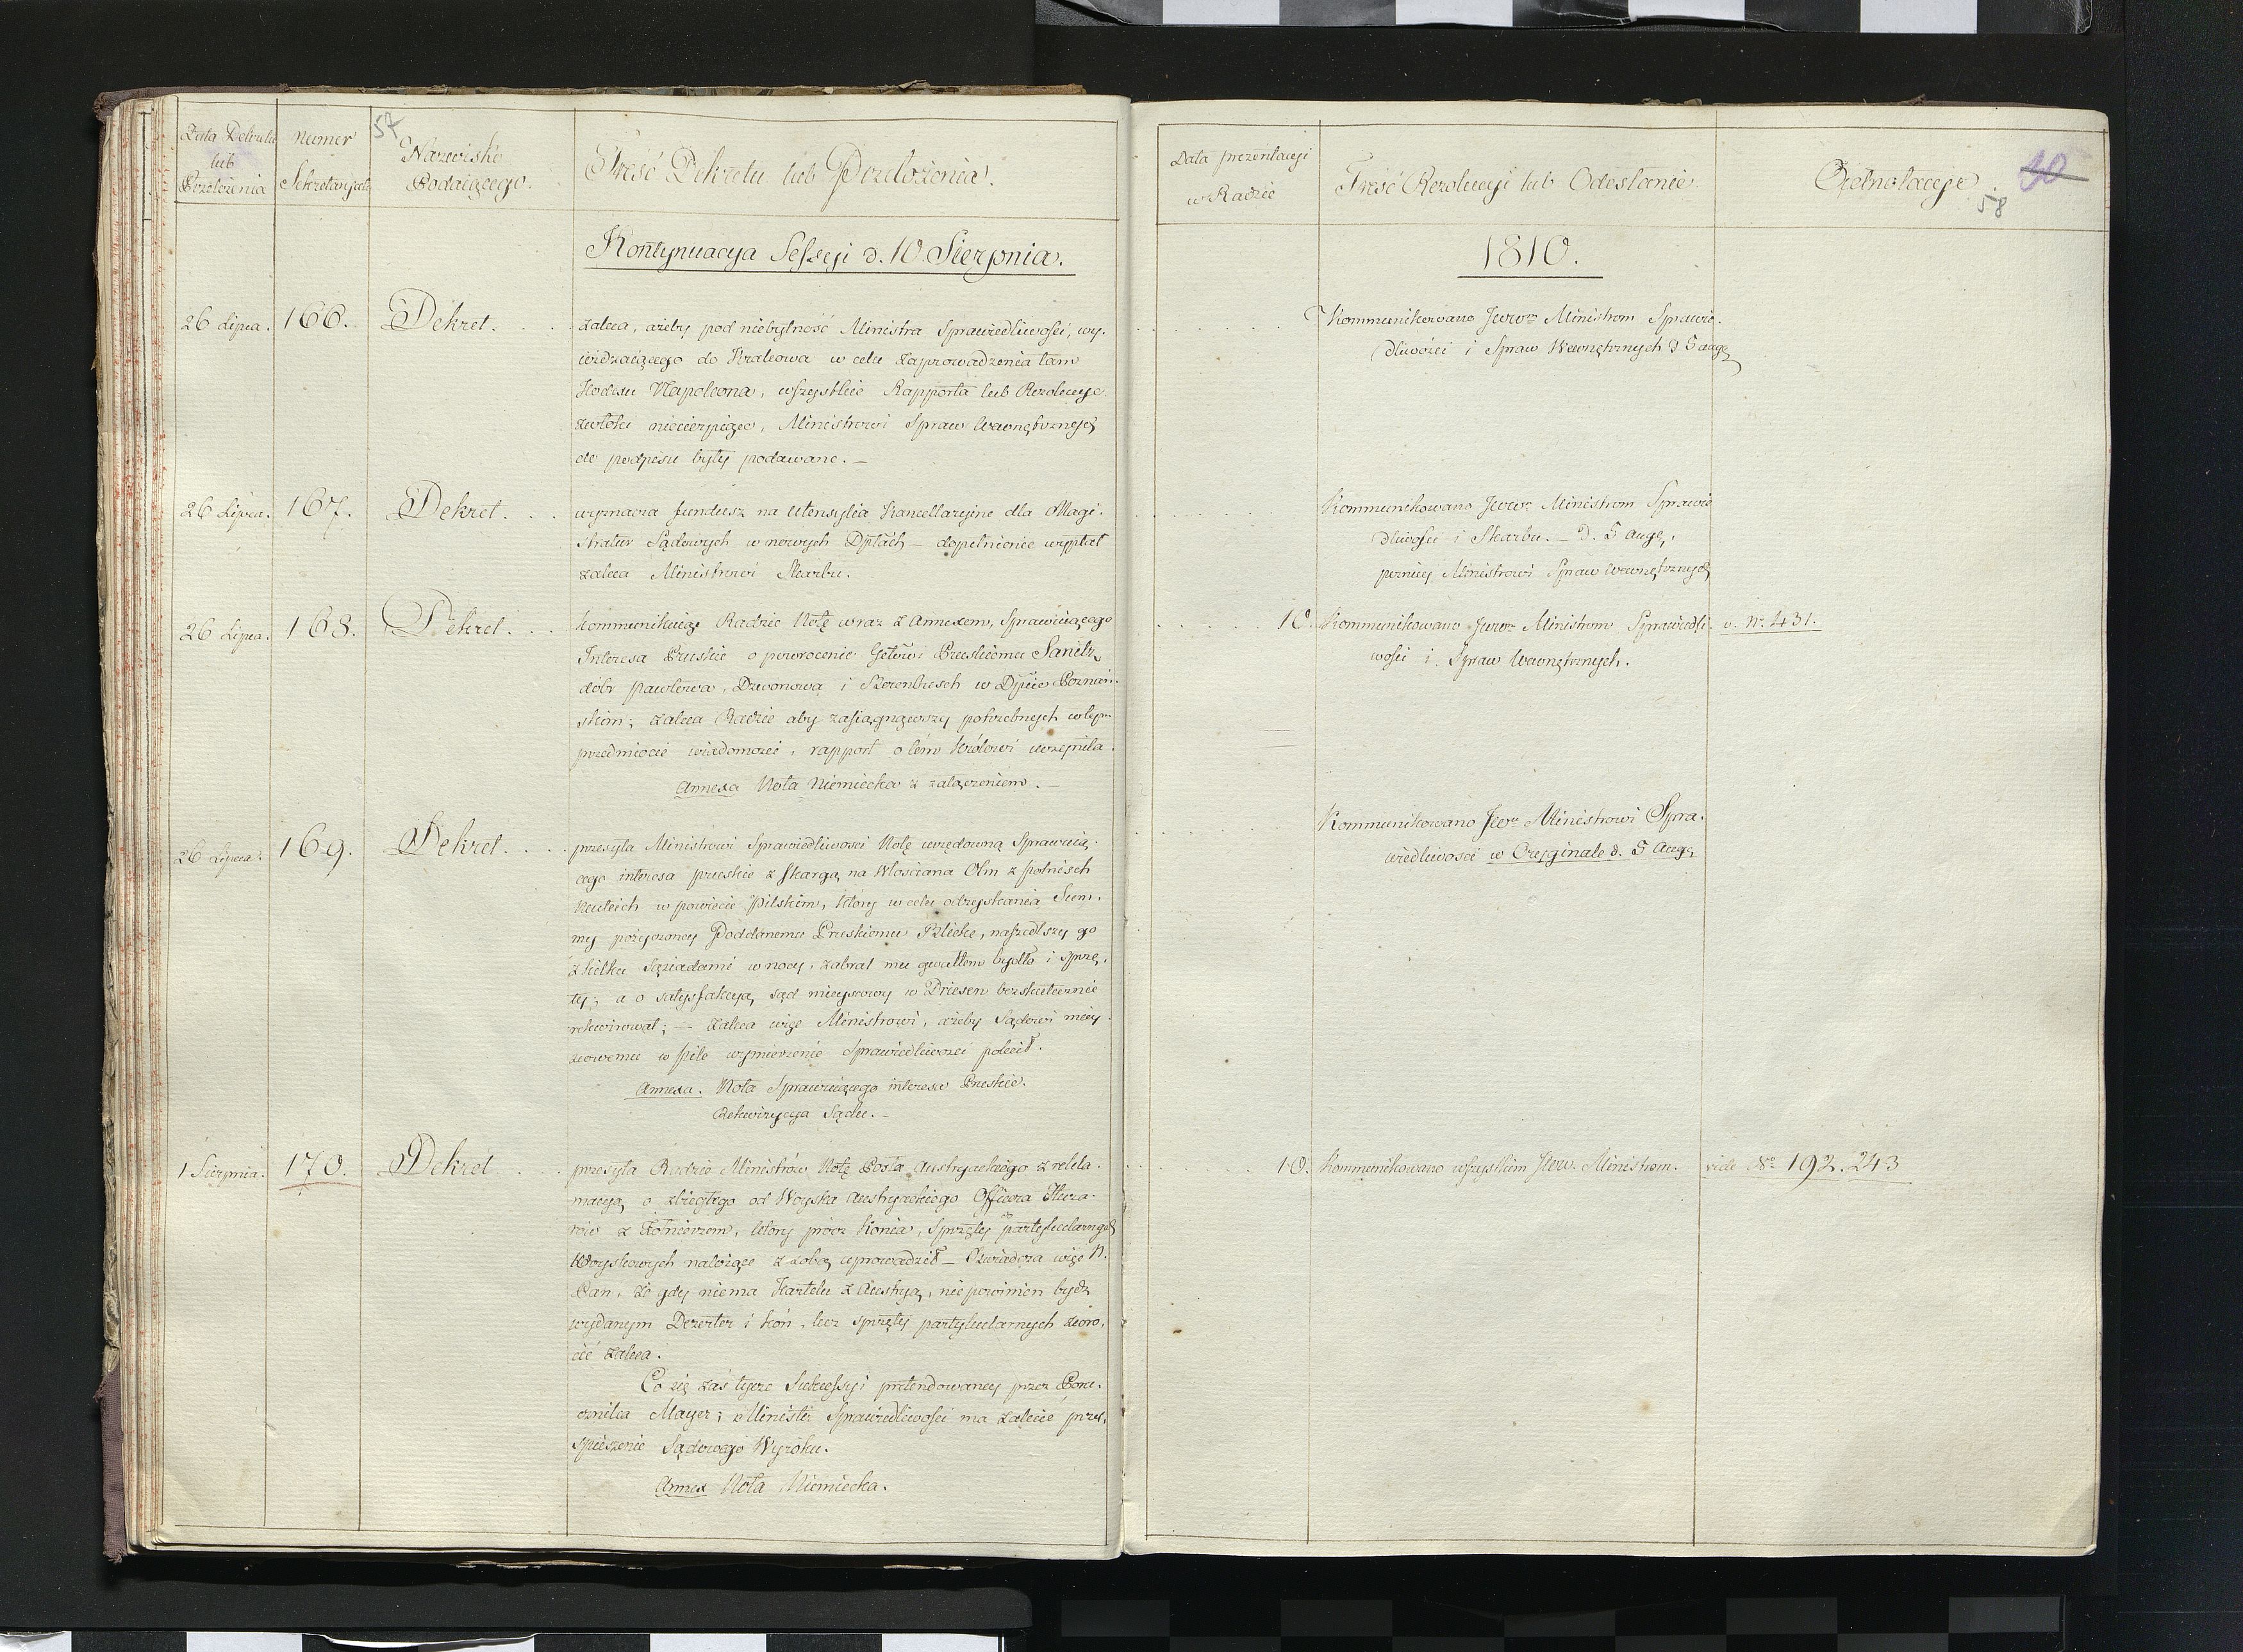 57
Data Dekretu
lub
Przełożenia
Numer
Sekretaryatu
Nazwisko
Podaiącego.
Treść Dekretu lub Przełożenia.
Kontynuacya Sessyi d. 10. Sierpnia.
26 Lipca. 166. Dekret.
zaleca, ażeby pod niebytność Ministra Sprawiedliwości, wy-
ieżdzaiącego do Krakowa w celu zaprowadzenia tam
Kodexu Napoleona, wszystkie Rapporta lub Rezolucye
zwłoki niecierpiące, Ministrowi Spraw Wewnętrznych
do podpisu były podawane. —
26 Lipca. 167. Dekret.
wyznacza fundusz na Utensylia Kancellaryine dla Magi-
stratur Sądowych w nowych Dptach — dopełnienie wypłat
zaleca Ministrowi Skarbu.
26 Lipca. 168. Dekret.
kommunikuiąc Radzie Notę wraz z Annexem, Sprawuiącego
Interesa Pruskie o powrócenie Gettowi Pruskiemu
dóbr Pawłowa, Dzwonowa i w Dpcie Poznań-
skim; zaleca Radzie aby zasiągnąwszy potrzebnych w tym
przedmiocie wiadomości, rapport o tém Królowi uczyniła.
Annexa Nota Niemiecka z załączeniem. —
26 Lipca. 169. Dekret.
przesyła Ministrowi Sprawiedliwości Notę urzędową Sprawuią-
cego interesa pruskie z skargą na Włościana Olm z polnisch
w powiecie Pilskim, który w celu odzyskania Sum-
my pożyczoney Poddanemu Pruskiemu, naszedłszy go
z kilku sąsiadami w nocy, zabrał mu gwałtem bydło i sprzę-
ty; a o satysfakcyą sąd mieyscowy w Driesen bezskutecznie
rekwirował; — zaleca więc Ministrowi, ażeby Sądowi miey-
scowemu w Pile wymierzenie sprawiedliwości polecił.
Annexa. Nota Sprawuiącego interesa Pruskie.
Rekwizycya Sądu. —
1 Sierpnia. 170. Dekret
przesyła Radzie Ministrów Notę Posła Austryackiego z rekla-
macyą o zbiegłego od Woyska Austryackiego Officera Huza-
rów z Żołnierzem, który prócz konia, sprzęty do partykularnych
Woyskowych należące z sobą uprowadził — Oświadcza więc N.
Pan, że gdy niema Kartelu z Austryą, niepowinien bydź
wydanym Dezerter i koń, lecz sprzęty partykularnych zwró-
cić zaleca.
Co się zaś tycze Sukcessyi pretendowaney przez Poru-
cznika Mayer; Minister Sprawiedliwości ma zalecić przy-
spieszenie Sądowego Wyroku.
Annex Nota Niemiecka.
Data prezentacyi
w Radzie
Treść Rezolucyi lub Odesłanie
Adnotacye.
30
58
1810.
Kommunikowano Jww. Ministrom Sprawie-
dliwości i Spraw Wewnętrznych d 5 aug.
Kommunikowano Jww. Ministrom Sprawie
dliwości i Skarbu. — d. 5 Aug.,
pozniey Ministrowi Spraw Wewnętrznych
10. Kommunikowano Jww. Ministrom Sprawiedli- v. Nr. 431.
wości i Spraw Wewnętrznych.
Kommunikowano Jww. Ministrowi Spra-
wiedliwosci w Oryginale d. 5 Aug.
10. Kommunikowano wszystkim Jww. Ministrom. vide No. 192. 243